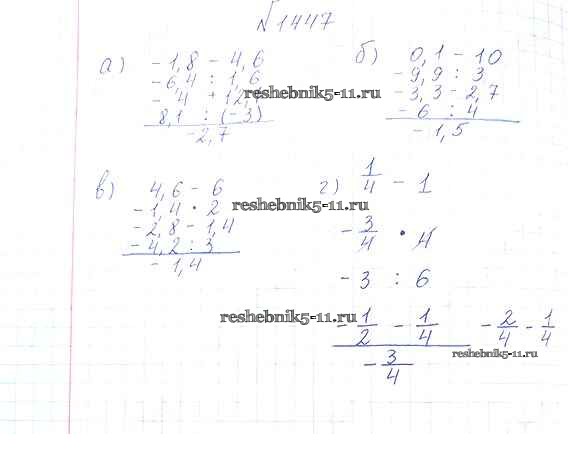 №1447
а) -1,8 - 4,6
-6,4 : 1,6
-4 + 12,1
8,1 : (-3)
-2,7
reshebnik5-11.ru
б) 0,1 - 10
-9,9 : 3
-3,3 - 2,7
-6 : 4
-1,5
в) 4,6 - 6
-1,4 • 2
-2,8 - 1,4
-4,2 : 3
-1,4
reshebnik5-11.ru
г) 1/4 - 1
-3/4 • 4
-3 : 6
reshebnik5-11.ru
-1/2 - 1/4 -2/4 - 1/4
reshebnik5-11.ru
-3/4